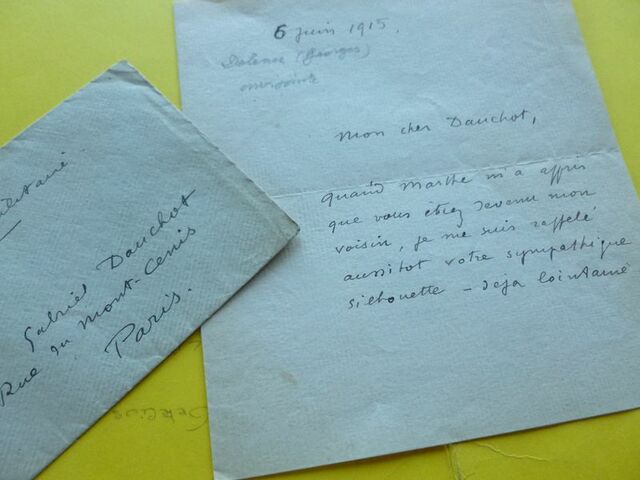 6 Juin 1915.
(Georges)
Mon cher Dauchot,
quand Marthe m'a appris
que vous étiez devenu mon
voisin, je me suis rappelé
aussitot votre sympathique
silhouette – deja lointaine
Gabriel Dauchot
Rue du Mont-Cenis
Paris.